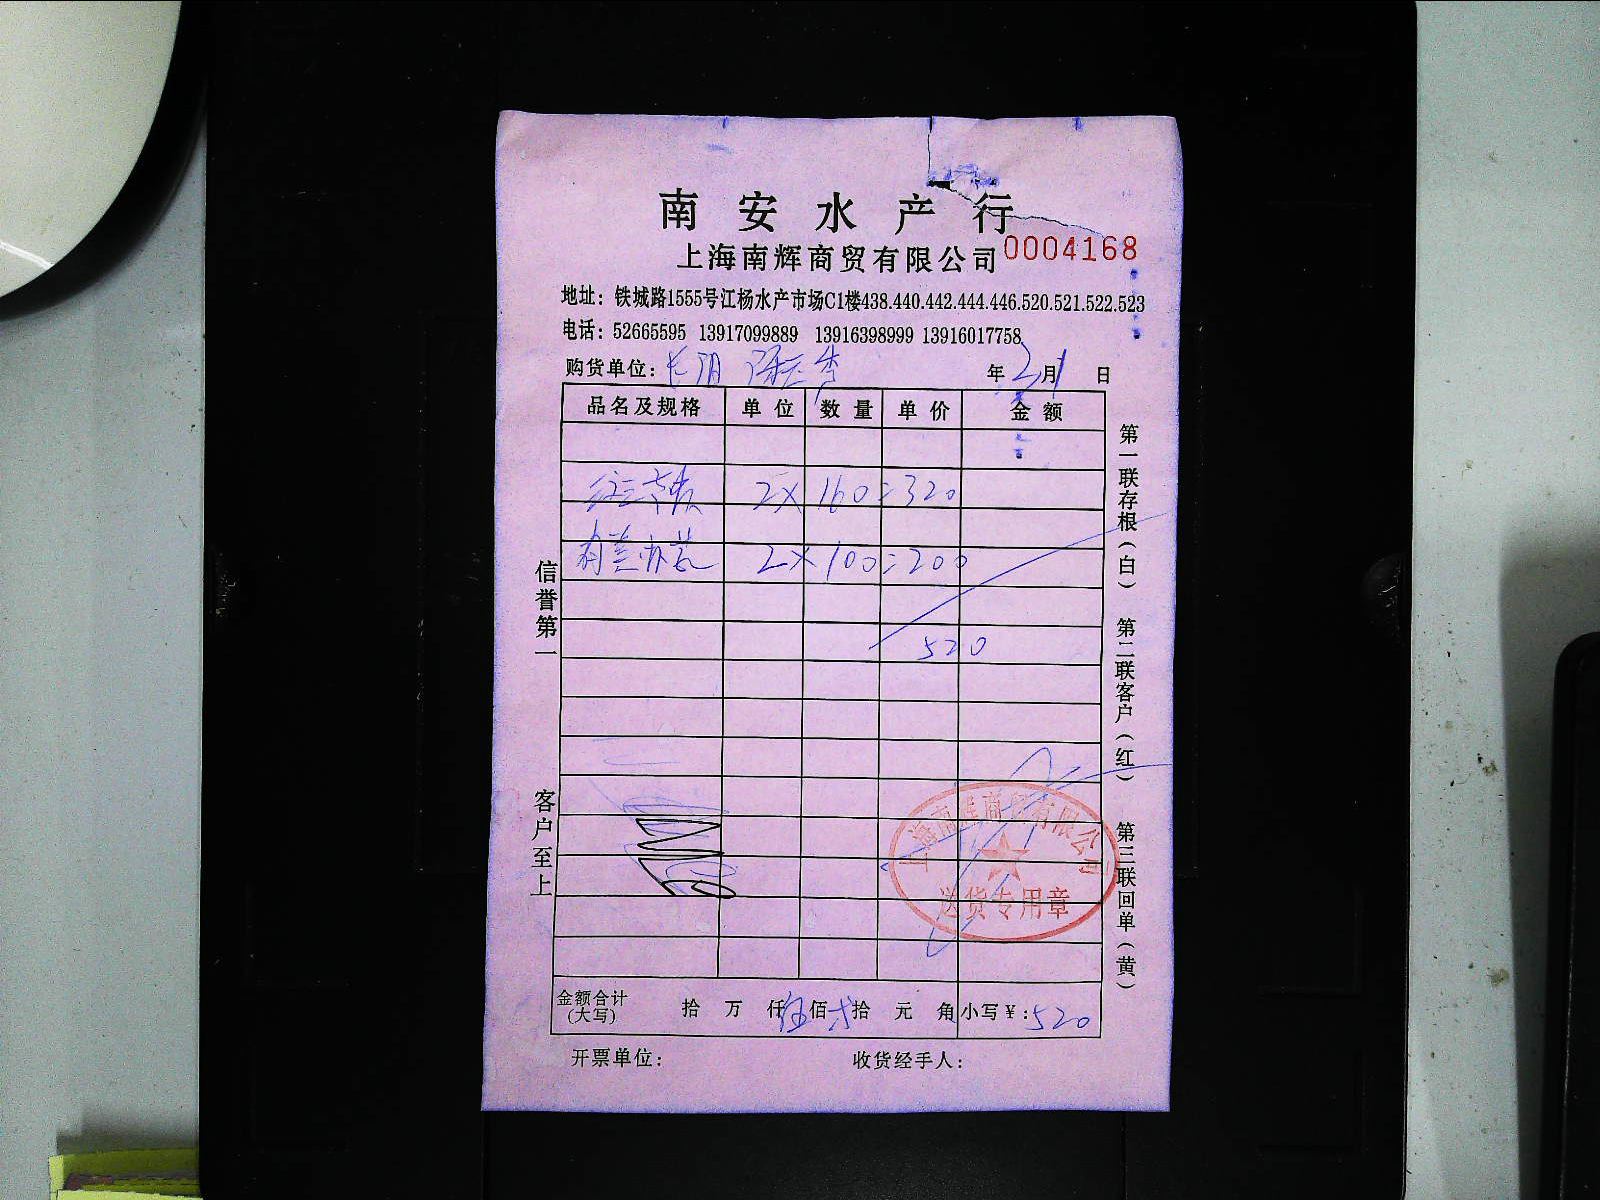 南安水产行
上海南辉商贸有限公司 0004168
地址：铁城路1555号江杨水产市场C1楼438.440.442.444.446.520.521.522.523
电话：52665595 13917099889 13916398999 13916017758
购货单位：长阴 年2月1日
品名及规格 单位 数量 单价 金额
2× 160=320
2×100=200
520
金额合计(大写) 拾 万 仟伍佰弍拾 元 角 小写￥:520
开票单位： 收货经手人：
信誉第一
客户至上
第一联存根(白) 第二联客户(红) 第三联回单(黄)
上海南辉商贸有限公司
送货专用章